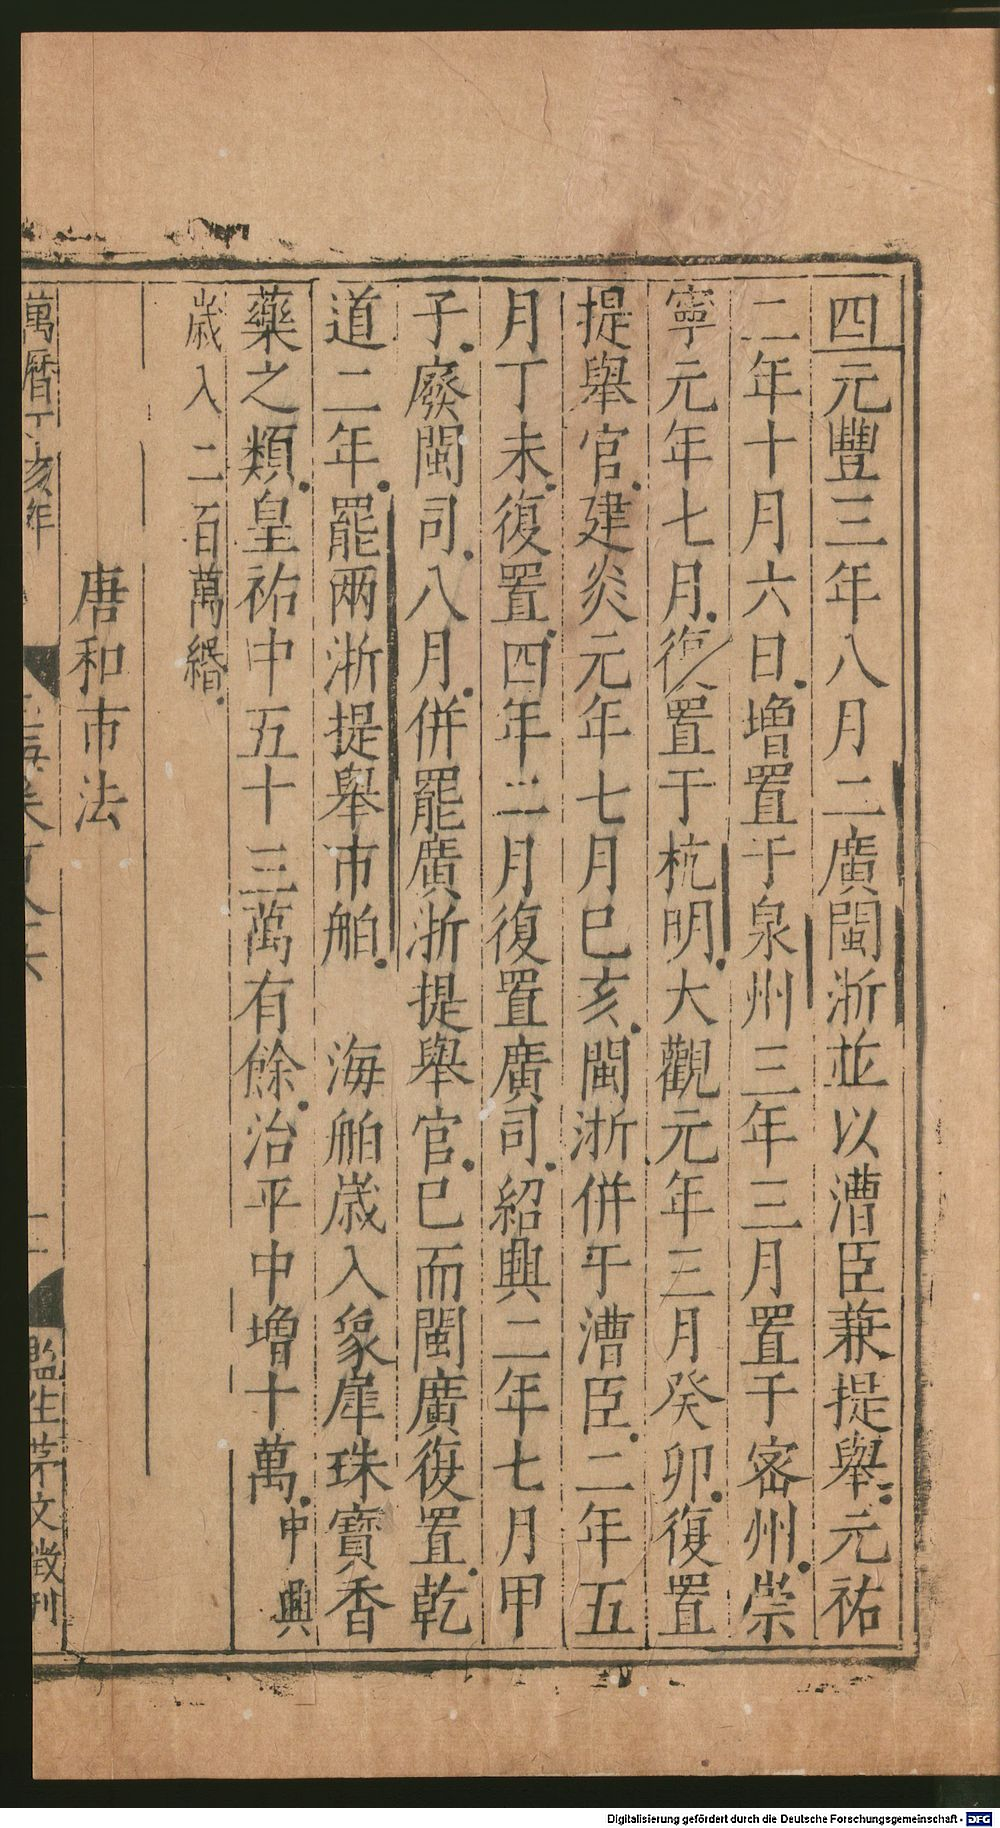 四元豐三年八月二廣閩浙並以漕臣兼提舉元祐
二年十月六日增置于泉州三年三月置于密州崇
寧元年七月復置于杭明大觀元年三月癸卯復置
提舉官建炎元年七月巳亥閩浙併于漕臣二年五
月丁未復置四年二月復置廣司紹興二年七月甲
子廢閩司八月併罷廣浙提舉官巳而閩廣復置乾
道二年罷兩浙提舉市舶　海舶歲入象犀珠寶香
藥之類皇祐中五十三萬有餘治平中增十萬中興
歲入二百萬緡
唐和市法
萬曆丁亥年
玉海卷百八六
監生茅文徵刊
Digitalisierung gefördert durch die Deutsche Forschungsgemeinschaft - DFG